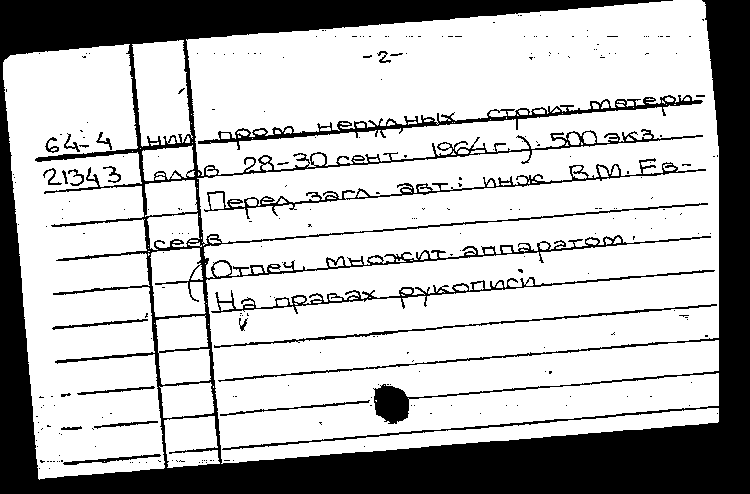 -2-
64-4 нии пром. нерудных строит. матери-
21343 алов 28-30 сент. 1964 г.). 500 экз.
Перед загл. авт.: инж. В.М. Ев-
сеев
Отпеч. множит. аппаратом.
На правах рукописи